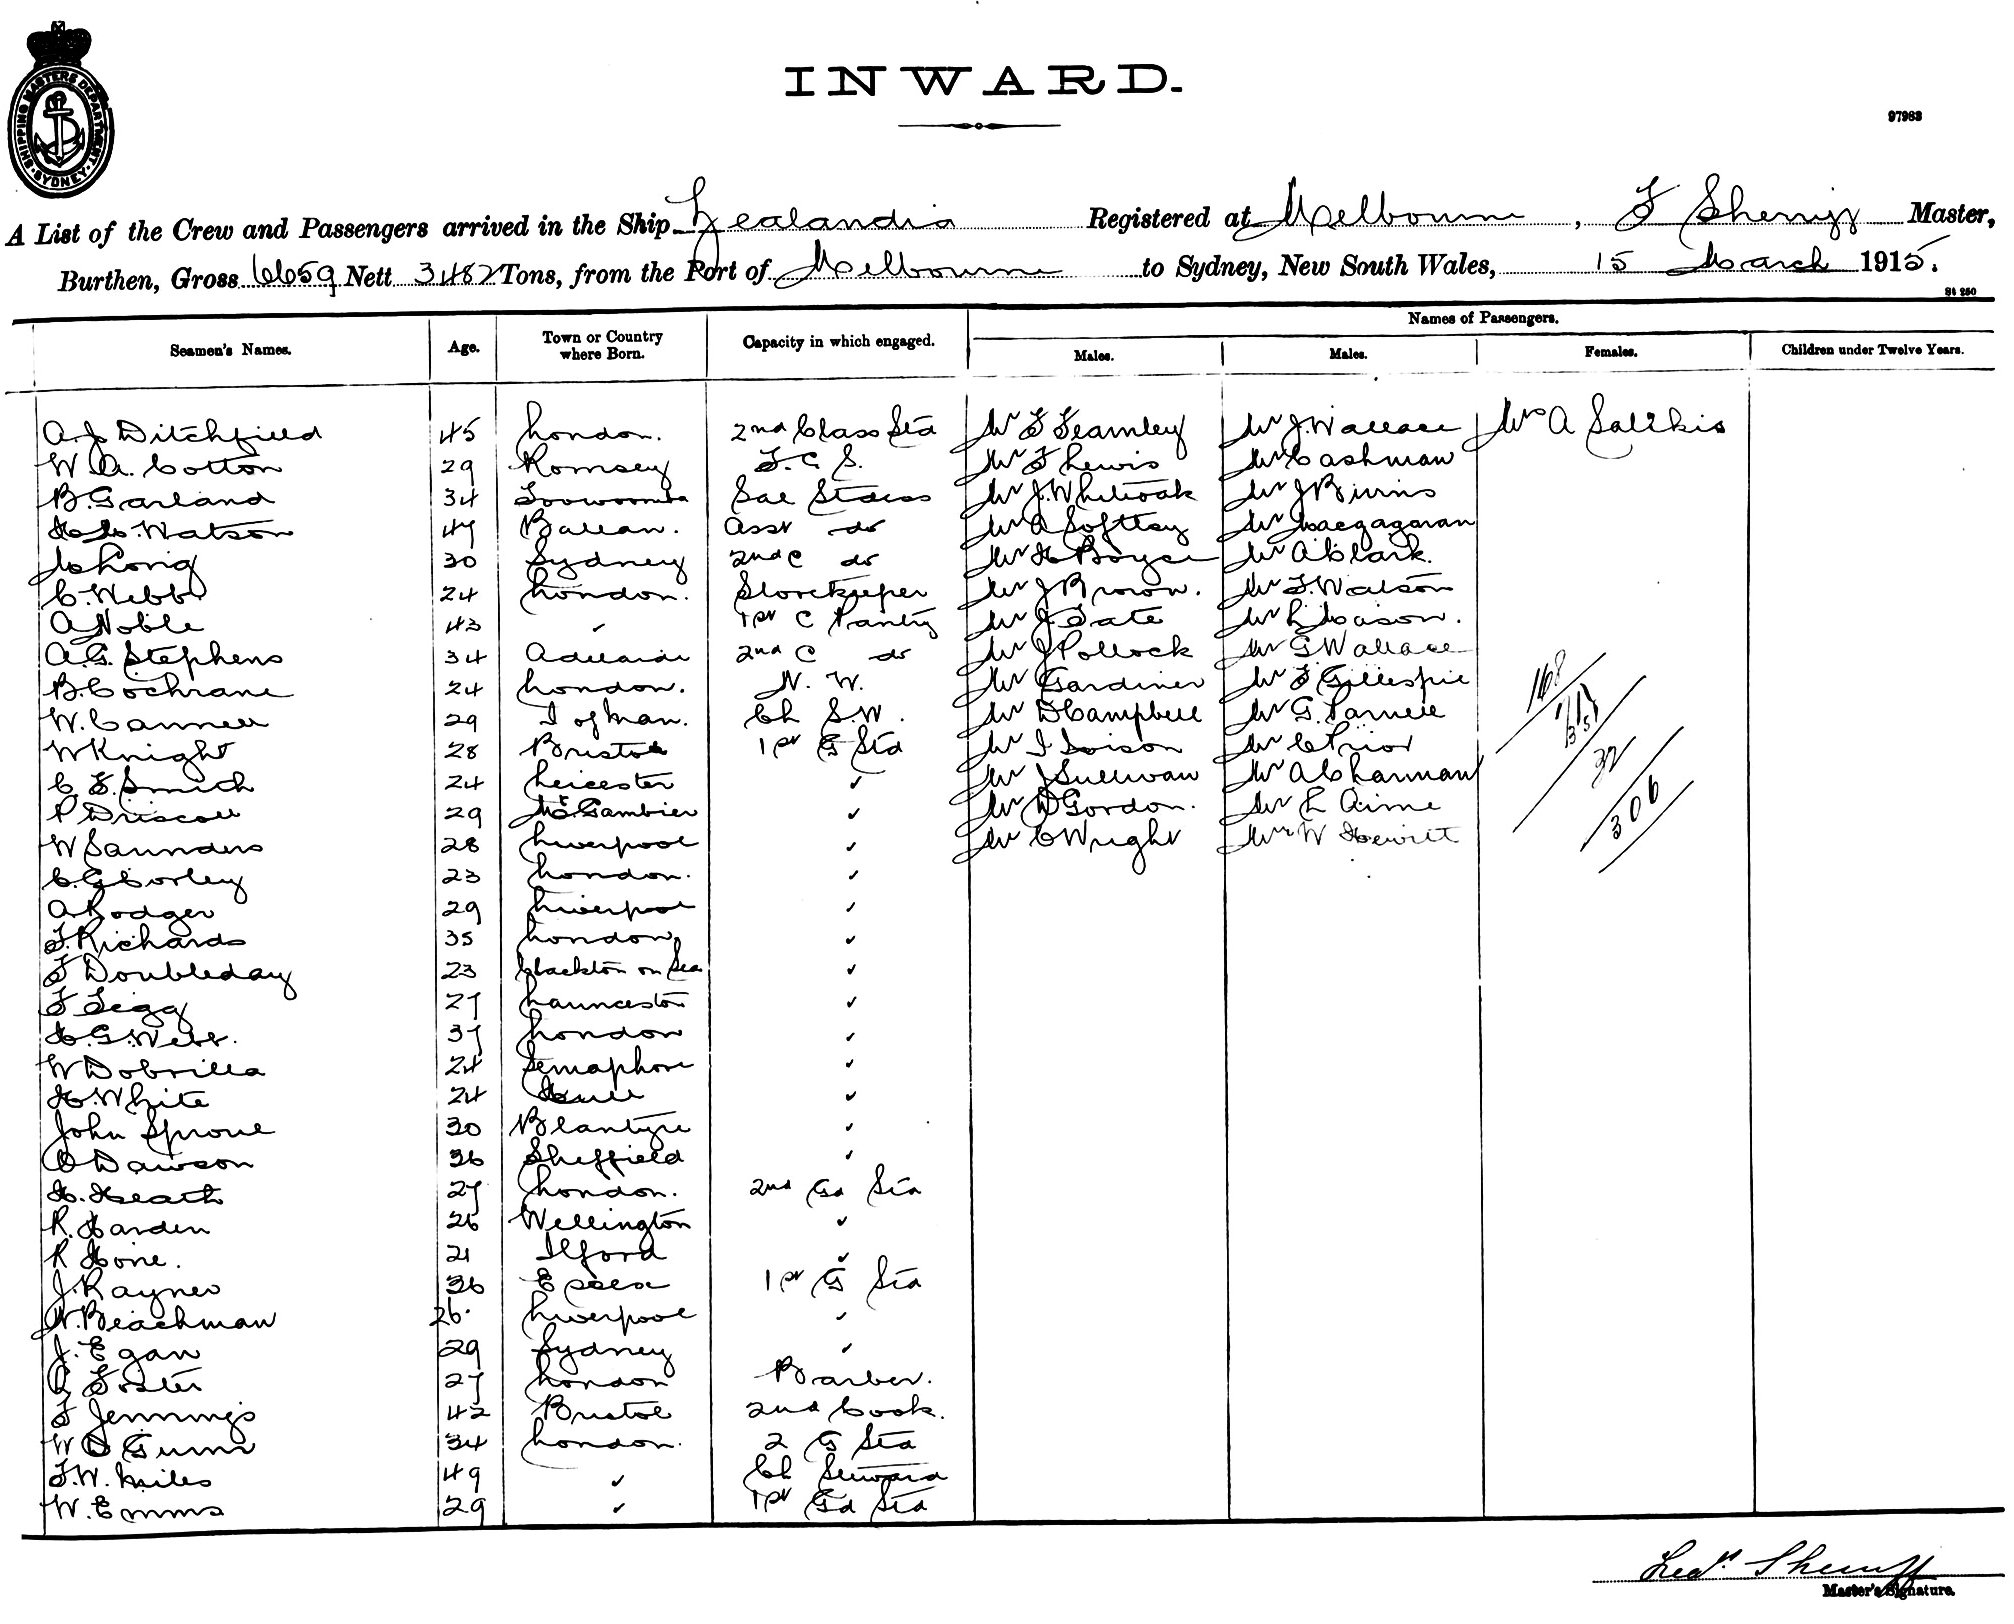 INWARD.
97983
SHIPPING MASTERS DEPARTMENT SYDNEY
A List of the Crew and Passengers arrived in the Ship Zealandia Registered at Melbourne, F Sherriff Master,
Burthen, Gross 6659 Nett 3482 Tons, from the Port of Melbourne to Sydney, New South Wales, 15 March 1915.
St 250
Seamen's Names. Age. Town or Country where Born. Capacity in which engaged. Names of Passengers.
Males. Males. Females. Children under Twelve Years.
A.J. Ditchfield 45 London. 2nd Class Std Mr F Fearnley Mr J. Wallace Mrs A Salekis
W. A. Cotton 29 Romsey F. C. S. Mr F Lewis Mr Cashman
B. Garland 34 Toowoomba Sal Stdess Mr J. Whiteoak Mr J Binns
H. M. Watson 47 Ballan. Asst do Mr A Softley Mr Macgagaran
M Long 30 Sydney 2nd C do Mr H Boyce Mr A Clark.
C. Webb 24 London. Storekeeper Mr J Brown. Mr F. Watson
A Noble 43 ✓ 1st C Pantry Mr J Tate Mr R Mason.
A. G. Stephens 34 Adelaide 2nd C do Mr J Pollock Mr G Wallace
B. Cochrane 24 London. N. W. Mr Gardiner Mr F Gillespie 168
W. Cannell 29 I of Man. Ch S.W. Mr D Campbell Mr G. Parnell
W Knight 28 Bristol 1st G Std Mr I Loison Mr C Prior 32
C F. Smith 24 Leicester ✓ Mr J Sullivan Mr A Charman
P Driscoll 29 Mt Gambier ✓ Mr D Gordon. Mr L Aime 306
W Saunders 28 Liverpool ✓ Mr C Wright Mr W Hewitt
C. G Corley 23 London. ✓
A Rodger 29 Liverpool ✓
F. Richards 35 London ✓
F Doubleday 23 Clackton on Sea ✓
F Tegg 27 Launceston ✓
H. G. Webb. 37 London ✓
W Dobrilla 24 Semaphore ✓
H. White 24 Hull ✓
John Sproul 30 Blantyre ✓
O Dawson 36 Sheffield ✓
H. Heath 27 London. 2nd Gd Std
R. Harden 26 Wellington ✓
R Hone. 21 Ilford ✓
J. Rayner 36 Essex 1st G Std
W. Beachman 26. Liverpool ✓
J. Egan 29 Sydney ✓
Foster 27 London Barber.
F Jennings 42 Bristol 2nd Cook.
W D Gunn 34 London. 2 G Std
F. W. Miles 49 ✓ Ch Steward
W. Emms 29 ✓ 1st Gd Std
Fredk Sherriff
Master's Signature.